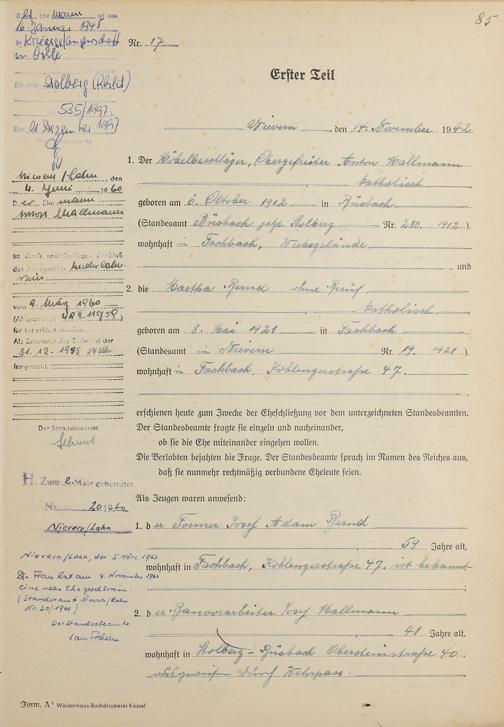 85
D er Ehe mann ist am
16. Januar 1945
in Kriegsgefangenschaft
Stolberg (Rhld)
535/1997
Nr. 17
Erster Teil
Nievern, den 14. November 1942
1. Der Möbelbeschläger, Obergefreiter Anton Mallmann
katholisch
geboren am 6. Oktober 1912 in Büsbach
(Standesamt Büsbach jetzt Stolberg Nr. 280. 1912).
wohnhaft in Fachbach, Werksgelände
, und
2. die Martha Bernd ohne Beruf
katholisch
geboren am 8. Mai 1921 in Fachbach
(Standesamt in Nievern Nr. 19. 1921).
wohnhaft in Fachbach, Koblenzerstraße 47.
erschienen heute zum Zwecke der Eheschließung vor dem unterzeichneten Standesbeamten.
Der Standesbeamte fragte sie einzeln und nacheinander,
ob sie die Ehe miteinander eingehen wollen.
Die Verlobten bejahten die Frage. Der Standesbeamte sprach im Namen des Reiches aus,
daß sie nunmehr rechtmäßig verbundene Eheleute seien.
Als Zeugen waren anwesend:
1. d er Former Josef Adam Bernd
59 Jahre alt,
wohnhaft in Fachbach, Koblenzerstraße 47. ist bekannt
;
2. d er Josef Mallmann
41 Jahre alt,
wohnhaft in Stolberg-Büsbach Obersteinstraße 40.
durch Wehrpass.
Nievern/Lahn, den
4. Juni 1960
D er Ehe mann
Anton Mallmann
ist durch rechtskräftigen Beschluß
des Amtsgerichts Niederlahnstein
vom 9. März 1960
für tot erklärt worden.
Als Zeitpunkt des Todes ist der
31.12.1945 24 Uhr
festgestellt.
Der Standesbeamte
H. Zum 2. Male geheiratet
Nr. 20/1960
Nievern/Lahn
Nievern/Lahn, den 5. März 1963
Die Frau hat am 4. November 1960
eine neue Ehe geschlossen.
(Standesamt Nievern/Lahn
Nr. 20/1960)
Der Standesbeamte
Form. A¹ Waisenhaus-Buchdruckerei Kassel